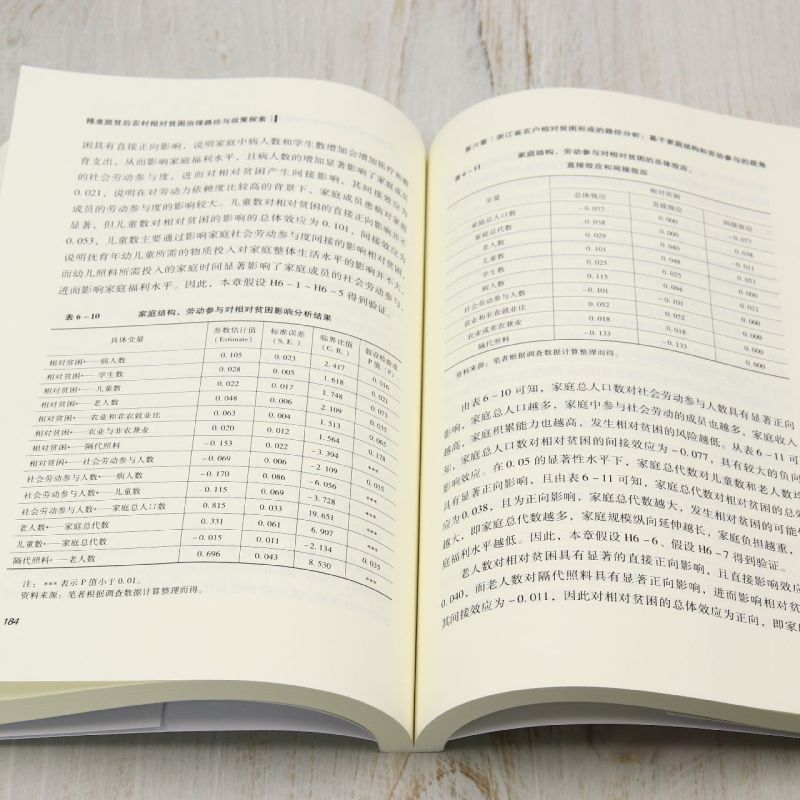 精准脱贫后农村相对贫困治理路径与政策探索
困具有直接正向影响，说明家庭中病人数和学生数增加会增加医疗和教
育支出，从而影响家庭福利水平，且病人数的增加显著影响了家庭成员
的社会劳动参与度，进而对相对贫困产生间接影响，其间接效应为
0.021，说明在对劳动力依赖度比较高的背景下，家庭成员患病对家庭
成员的劳动参与度的影响较大。儿童数对相对贫困的直接正向影响并不
显著，但儿童数对相对贫困的影响的总体效应为 0.101，间接效应为
0.053，儿童数主要通过影响家庭社会劳动参与度间接的影响相对贫困，
说明抚育年幼儿童所需的物质投入对家庭整体生活水平的影响并不大，
而幼儿照料所需投入的家庭时间显著影响了家庭成员的社会劳动参与，
进而影响家庭福利水平。因此，本章假设 H6-1~H6-5 得到验证。
表 6-10 家庭结构、劳动参与对相对贫困影响分析结果
具体变量 参数估计值 (Estimate) 标准误差 (S.E.) 临界比值 (C.R.) 假设检验成 P值 (P)
相对贫困←—病人数 0.105 0.023 2.417 0.016
相对贫困←—学生数 0.028 0.005 1.618 0.021
相对贫困←—儿童数 0.022 0.017 1.748 0.071
相对贫困←—老人数 0.048 0.006 2.109 0.035
相对贫困←—农业和非农就业比 0.063 0.004 1.513 0.065
相对贫困←—农业与非农兼业 0.020 0.012 1.564 0.178
相对贫困←—隔代照料 -0.153 0.022 -3.394 ***
相对贫困←—社会劳动参与人数 -0.069 0.006 -2.109 0.015
社会劳动参与人数←—病人数 -0.170 0.086 -6.056 ***
社会劳动参与人数←—儿童数 -0.115 0.069 -3.728 ***
社会劳动参与人数←—家庭总人口数 0.815 0.033 19.651 ***
老人数←—家庭总代数 0.331 0.061 6.907 ***
儿童数←—家庭总代数 -0.015 0.011 -2.134 0.035
隔代照料←—老人数 0.696 0.043 8.530 ***
注：*** 表示 P 值小于 0.01。
资料来源：笔者根据调查数据计算整理而得。
184
第六章 浙江省农户相对贫困形成的路径分析：基于家庭结构和劳动参与的视角
表 6-11 家庭结构、劳动参与对相对贫困的总体效应、
直接效应和间接效应
变量 相对贫困
总体效应 直接效应 间接效应
家庭总人口数 -0.077 0.000 -0.077
家庭总代数 0.038 0.000 0.038
老人数 0.029 0.040 -0.011
儿童数 0.101 0.048 0.053
学生数 0.025 0.025 0.000
病人数 0.115 0.094 0.021
社会劳动参与人数 -0.101 -0.101 0.000
农业和非农就业比 0.052 0.052 0.000
农业或非农兼业 0.018 0.018 0.000
隔代照料 -0.133 -0.133 0.000
资料来源：笔者根据调查数据计算整理而得。
由表 6-10 可知，家庭总人口数对社会劳动参与人数具有显著正向
影响，家庭总人口越多，家庭中参与社会劳动的成员也越多，家庭收入
越高，家庭积累能力也越高，发生相对贫困的风险越低。从表 6-11 可
知，家庭总人口数对相对贫困的间接效应为 -0.077，具有较大的负向
影响效应。在 0.05 的显著性水平下，家庭总代数对儿童数和老人数均
具有显著正向影响，且由表 6-11 可知，家庭总代数对相对贫困的总效
应为 0.038，且为正向影响，家庭总代数越大，发生相对贫困的可能性
越大，即家庭总代数越多，家庭规模纵向延伸越长，家庭负担越重，
庭福利水平越低。因此，本章假设 H6-6、假设 H6-7 得到验证。
老人数对相对贫困具有显著的直接正向影响，且直接影响效应
0.040，而老人数对隔代照料具有显著正向影响，进而影响相对贫
其间接效应为 -0.011，因此对相对贫困的总体效应为正向，即家